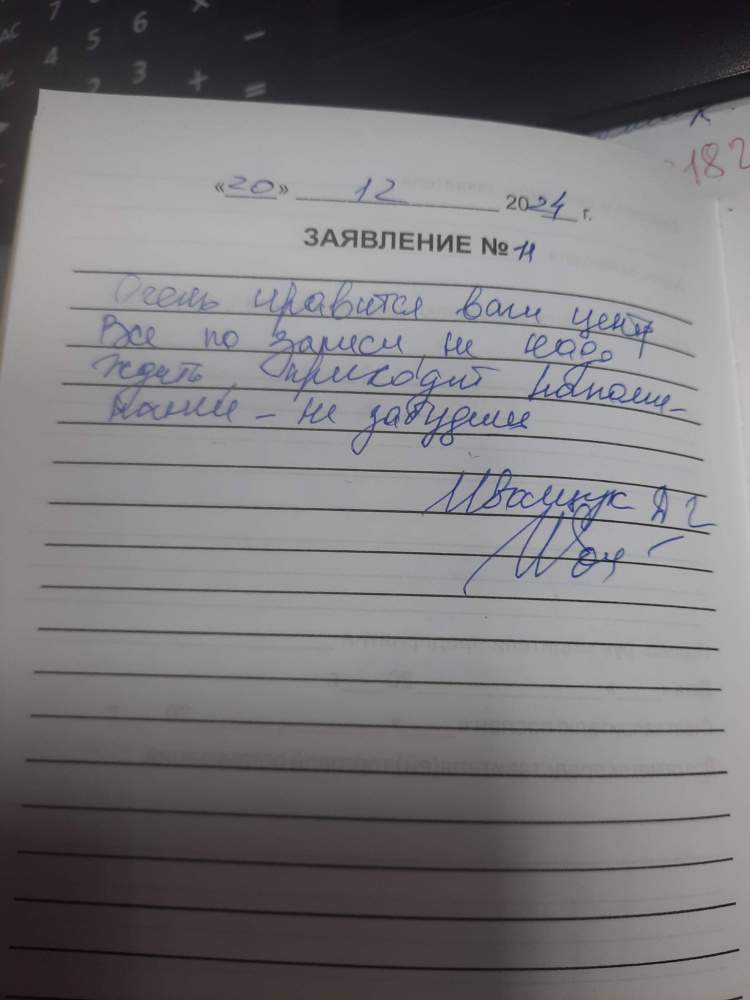 «20» 12 2024 г.
ЗАЯВЛЕНИЕ № 11
Очень нравится ваш центр
Все по записи, не надо
ждать, приходит напоми-
нание - не забудешь
Иващук А Г
182
AC 7 6 x
4 5 -
2 3 + =